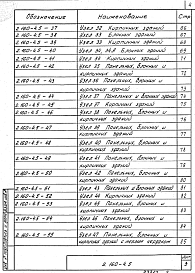 4
Обозначение Наименование Стр.
2.160-4.5 - 37 Узел 32 Кирпичных зданий 66
2.160-4.5 - 38 Узел 33 Блочных зданий 67
2.160-4.5 - 39 Узел 33 Кирпичных зданий
2.160-4.5 - 40 Блочных зданий
2.160-4.5 Узел 34 Кирпичных зданий
2.160-4.5 Узел 35 Панельных, Блочных и
кирпичных зданий 72
2.160-4.5 - 43 Узел 36 Панельных, Блочных и
кирпичных зданий 73
2.160-4.5 - 44 Узел 37 Панельных и Блочных зданий
2.160-4.5 Узел 37 Кирпичных зданий
2.160-4.5 Узел 38 Панельных, Блочных и
кирпичных зданий
2.160-4.5 - 47 Узел 39 Панельных, Блочных и
кирпичных зданий 77
2.160-4.5 - 48 Узел 40 Панельных, Блочных и
кирпичных зданий
2.160-4.5 - 49 Узел 41 Панельных, Блочных и
кирпичных зданий
2.160-4.5 - 50 Узел 42 Панельных, Блочных и
кирпичных зданий 80
2.160-4.5 - 51 Узел 43 Панельных и Блочных зданий 81
2.160-4.5 - 52 Узел 44 Кирпичных зданий 82
2.160-4.5 - 53 Узел 45 Панельных, Блочных и
кирпичных зданий 83
2.160-4.5 - 54 Узел 46 Панельных, Блочных и
кирпичных зданий 84
2.160-4.5 - 55 Узел Панельных, Блочных и
кирпичных зданий с теплым чердаком 85
2.160-4.5